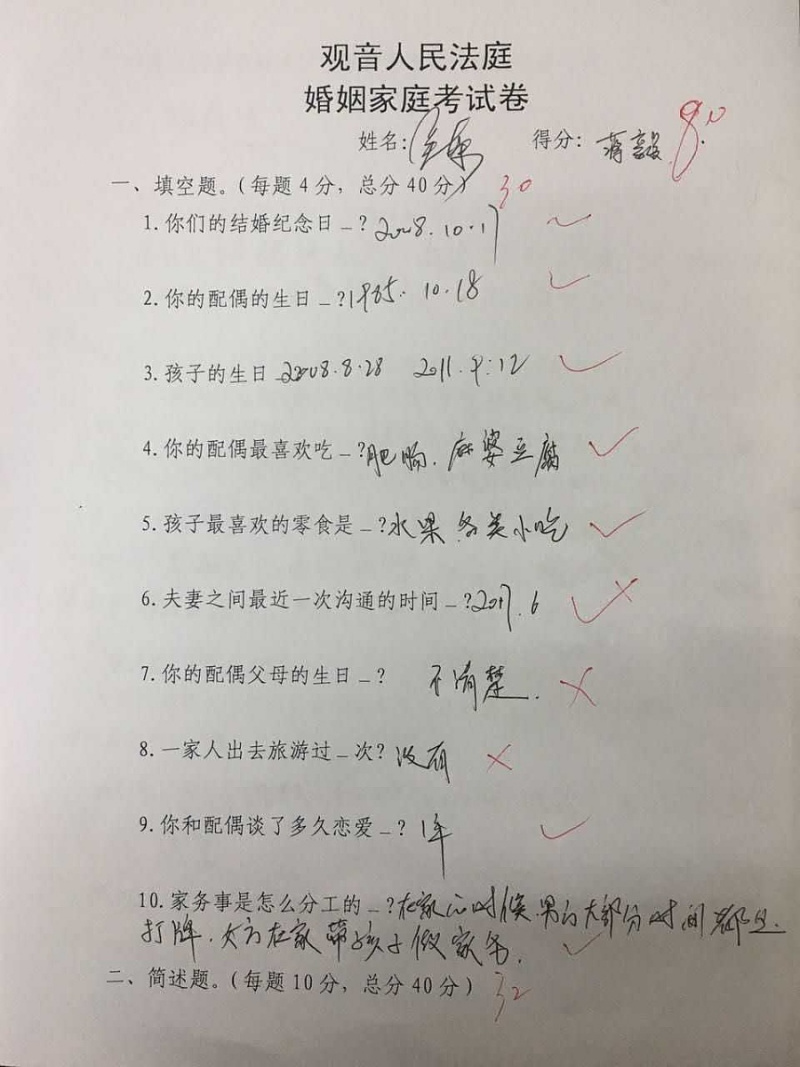 观音人民法庭
婚姻家庭考试卷
姓名: 得分: 蒋毅 80.
一、填空题。(每题4分，总分40分) 30
1.你们的结婚纪念日_? 2008.10.17
2.你的配偶的生日_? 1985. 10.18
3.孩子的生日_2008.8.28 2011.9.12
4.你的配偶最喜欢吃_?肥肠.麻婆豆腐
5.孩子最喜欢的零食是_?水果 各类小吃
6.夫妻之间最近一次沟通的时间_?2017.6
7.你的配偶父母的生日_? 不清楚.
8.一家人出去旅游过_次? 没有
9.你和配偶谈了多久恋爱_? 1年
10.家务事是怎么分工的_?在家的时候.男方大部分时间都是
打牌.女方在家带孩子做家务.
二、简述题。(每题10分，总分40分) 32